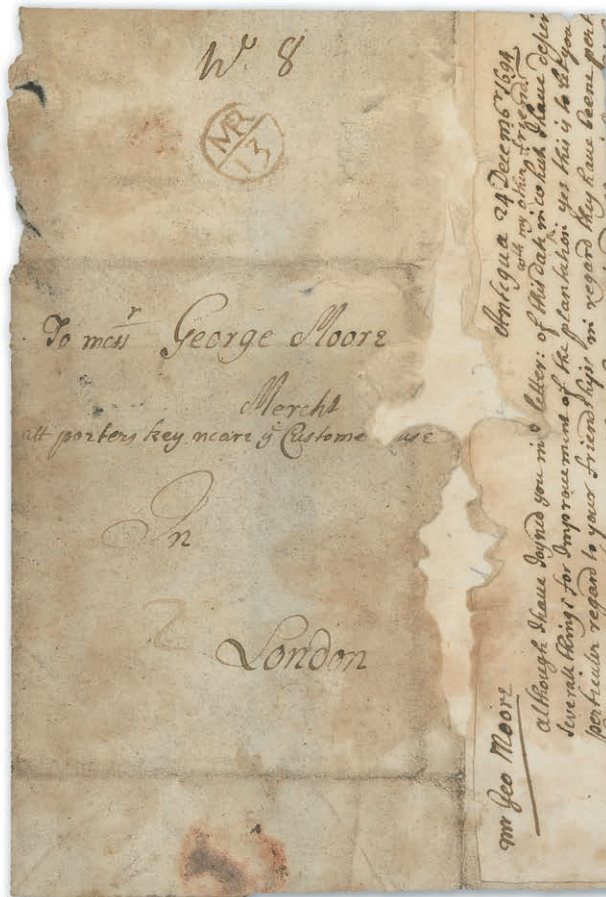 N° 8
MR
13
To messr George Moore
Mercht
att porters key neare ye Custome use
In
London
2
Antigua 24 Decembr 1694
with my other friends
mr Geo Moore
although I haue Joyned you in a letter: of this date in which I haue desir
seuerall things for Improuement of the plantation yet this is to let you
perticuler regard to your friendships in regard they haue beene pert